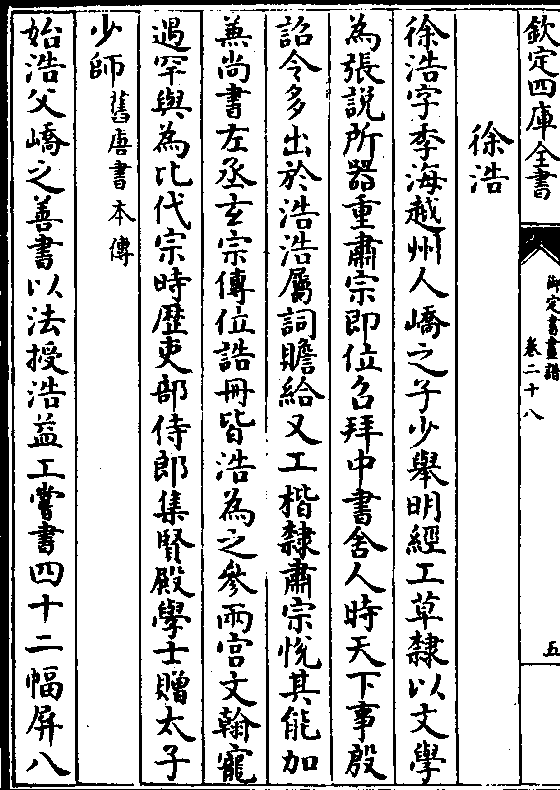 欽定四庫全書
御定書畫譜
卷二十八
五
徐浩
徐浩字季海越州人嶠之子少舉明經工草隸以文學
為張説所器重肅宗即位召拜中書舍人時天下事殷
詔令多出於浩浩屬詞贍給又工楷隸肅宗悅其能加
兼尚書左丞𤣥宗傳位誥冊皆浩為之參兩宫文翰寵
遇罕與為比代宗時歴吏部侍郎集賢殿學士贈太子
少師舊唐書本傳
始浩父嶠之善書以法授浩益工嘗書四十二幅屏八